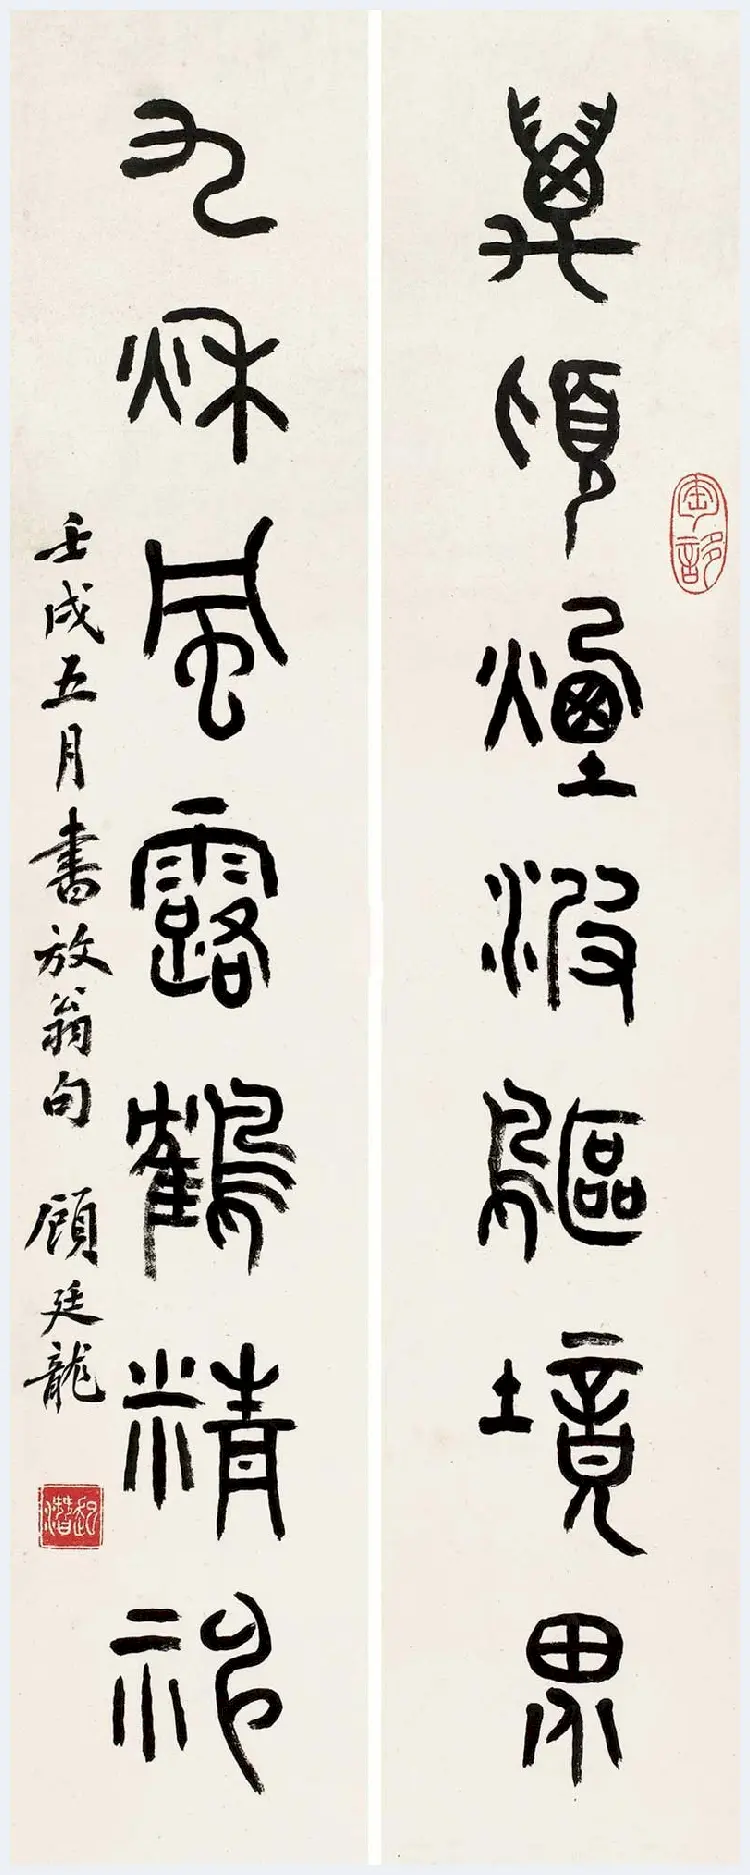 萬頃煙波鷗境界
匋誃
九秋風露鶴精神
壬戌五月書放翁句 顧廷龍
起潛